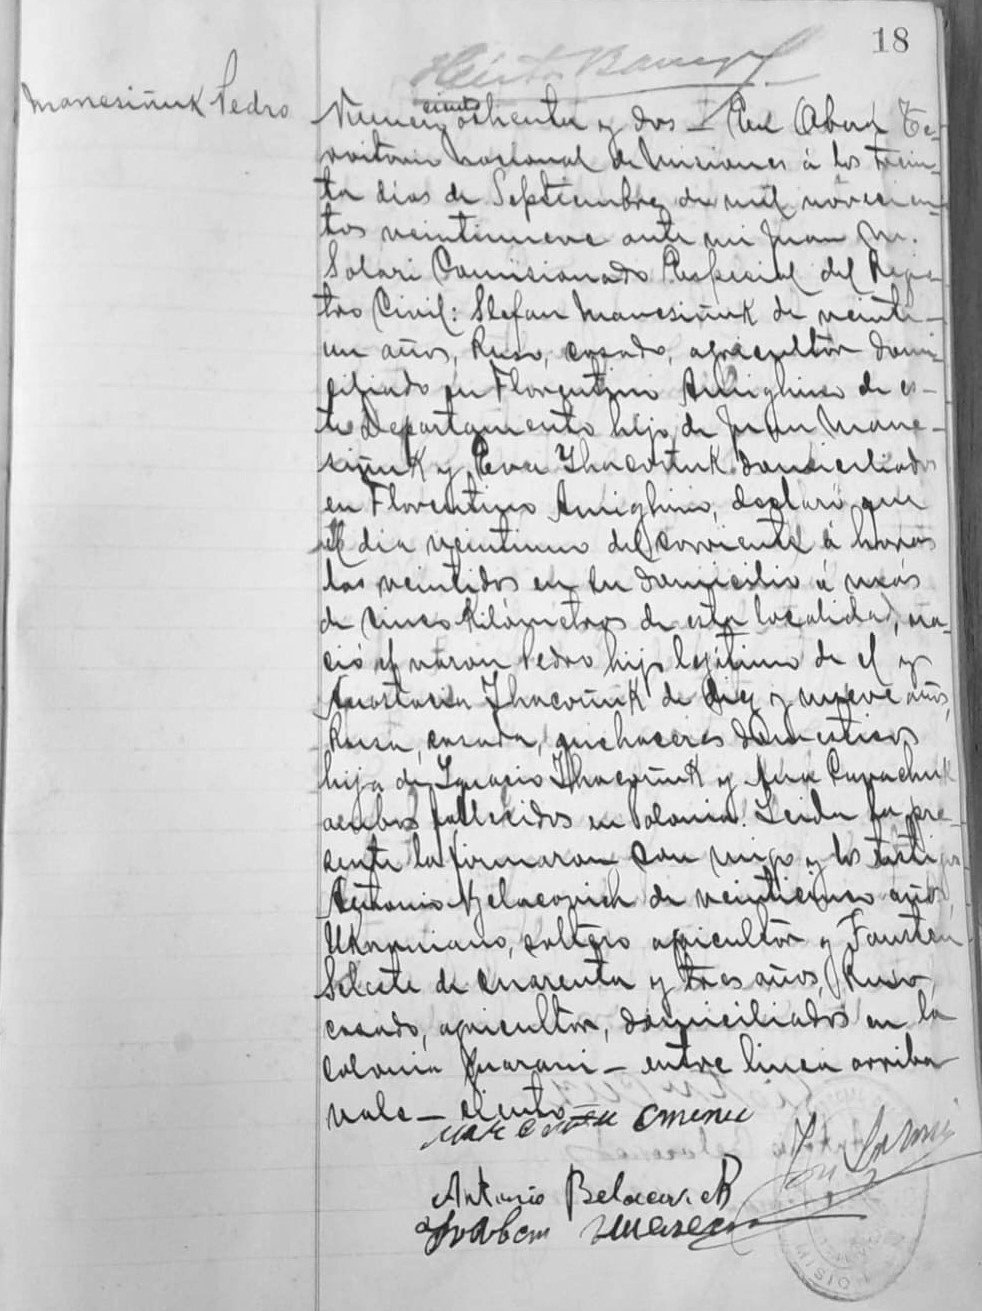 18
Manesiñuk Pedro
Numero ciento ochenta y dos – En Oberá Te-
rritorio Nacional de Misiones á los trein-
ta dias de Septiembre de mil novecien-
tos veintinueve ante mi Juan M.
Solari Comisionado Especial del Regis-
tro Civil: Stefan Manesiñuk de veinti-
un años, Ruso, casado, agricultor domi-
ciliado en Florentino Amighino de es-
te Departamento hijo de Juan Mane-
siñuk y Eva Thacoñuk domiciliados
en Florentino Amighino, declaró que
el dia veintiuno del corriente á horas
las veintidos en su domicilio á más
de cinco kilómetros de esta localidad, na-
ció el varon Pedro hijo legítimo de el y
Anastacia Thacoñuk de diez y nueve años,
Rusa, casada, quehaceres domesticos
hija de Ignacio Thacoñuk y Ana
ambos fallecidos en Polonia. Leida la pre-
sente la firmaron con migo y los testigos
Antonio Belacovich de veinticinco años,
Ukraniano, soltero agricultor y
de cuarenta y tres años, Ruso
casado, agricultor, domiciliados en la
colonia Guarani – entre linea arriba
vale – ciento
Antonio